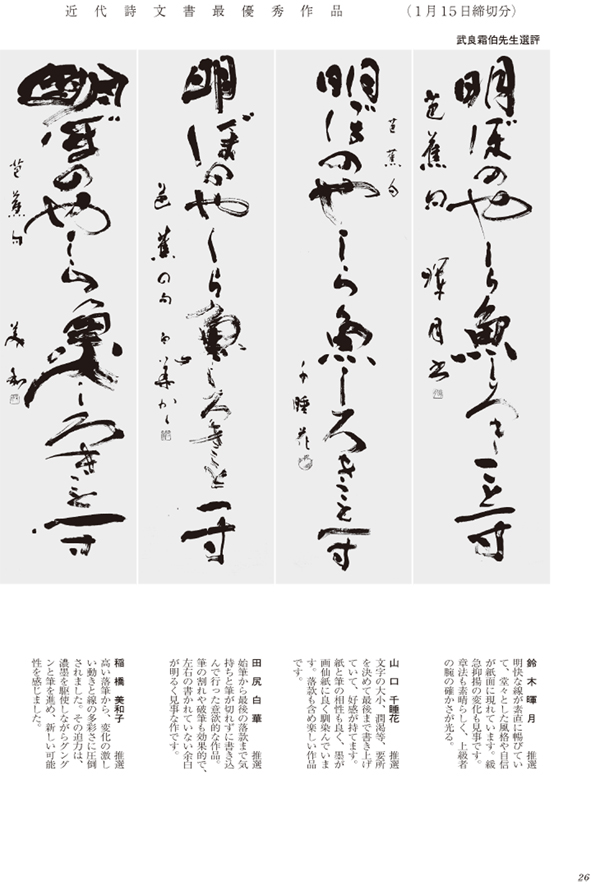 近代詩文書最優秀作品 （1月15日締切分）
武良霜伯先生選評
明ぼのやしら魚しろきこと一寸
芭蕉句 暉月書
明ぼのやしら魚しろきこと一寸
芭蕉句
千睡花
明ぼのやしら魚しろきこと一寸
芭蕉の句 白華かく
明ぼのやしら魚しろきこと一寸
芭蕉句
美和
鈴木暉月 推選
明快な線が素直に暢びてい
て、堂々とした風格や自信
が紙面に現れています。緩
急抑揚の変化も見事です。
章法も素晴らしく、上級者
の腕の確かさが光る。
山口千睡花 推選
文字の大小、潤渇等、要所
を決めて最後まで書き上げ
ていて、好感が持てます。
紙と筆の相性も良く、墨が
画仙紙に良く馴染んでいま
す。落款も含め楽しい作品
です。
田尻白華 推選
始筆から最後の落款まで気
持ちと筆が切れずに書き込
んで行った意欲的な作品。
筆の割れや破筆も効果的で、
左右の書かれていない余白
が明るく見事な作です。
稲橋美和子 推選
高い落筆から、変化の激し
い動きと線の多彩さに圧倒
されました。その迫力は、
濃墨を駆使しながらグング
ンと筆を進め、新しい可能
性を感じました。
26